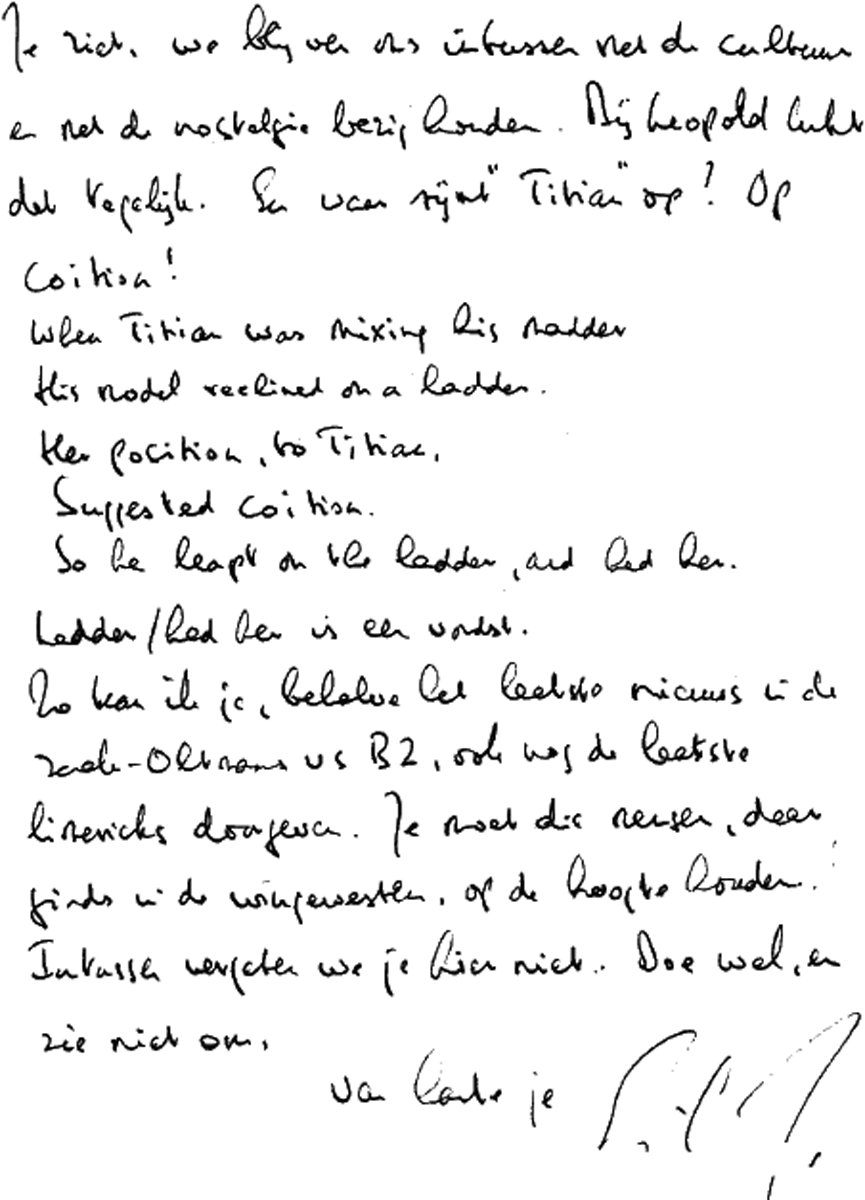 Je ziet, we blijven ons intussen met de cultuur
en met de nostalgie bezig houden. Bij Leopold lukt
dat tegelijk. En waar rijmt "Titian" op? Op
coition!
When Titian was mixing his madder
His model reclined on a ladder.
Her position, to Titian,
Suggested coition.
So he leapt on the ladder, and had her.
Ladder/had her is een vondst.
Zo kan ik je, behalve het laatste nieuws in de
zaak-Oltmans vs BZ, ook nog de laatste
limericks doorgeven. Je moet die mensen, daar
ginds in de wingewesten, op de hoogte houden.
Intussen vergeten we je hier niet. Doe wel, en
zie niet om,
van harte je